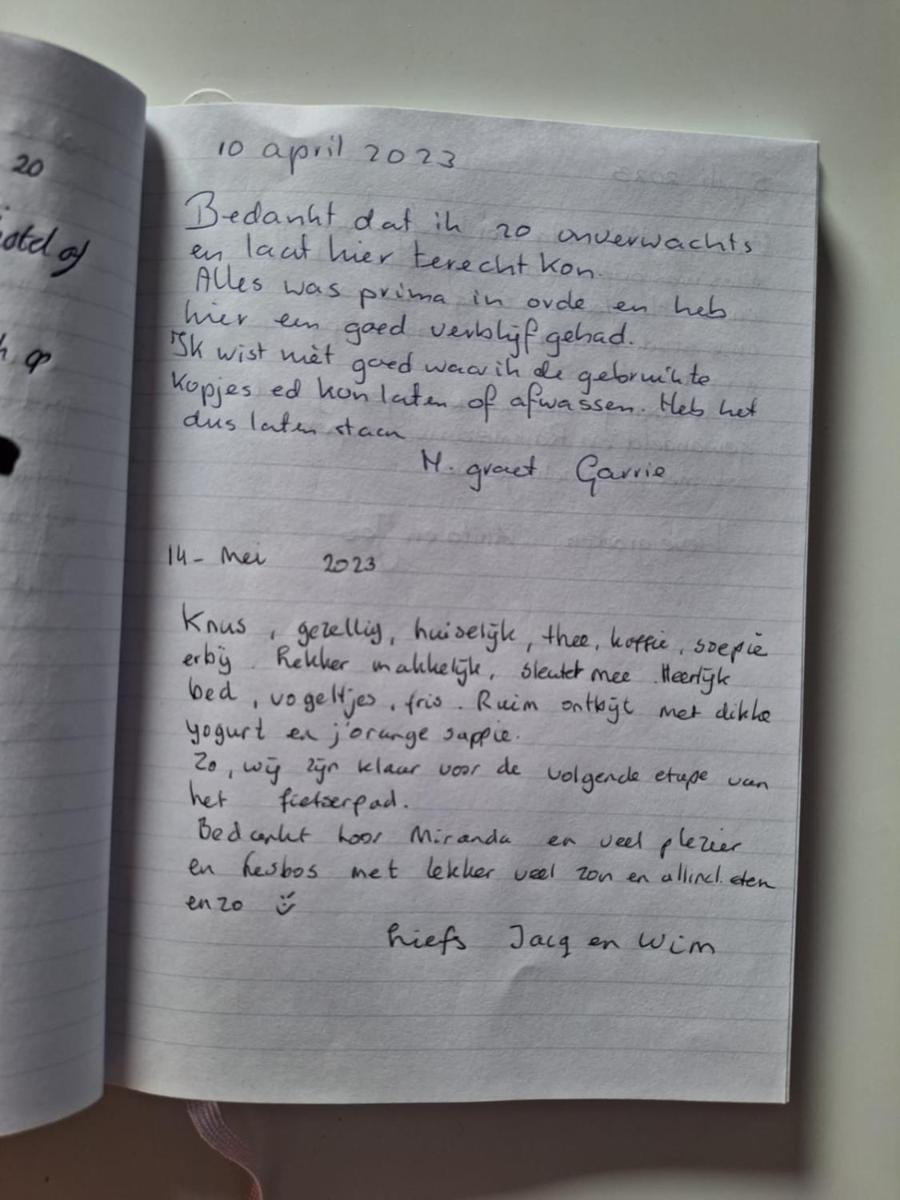 20
10 april 2023
Bedankt dat ik zo onverwachts
en laat hier terecht kon.
Alles was prima in orde en heb
hier een goed verblijf gehad.
Ik wist niet goed waar ik de gebruikte
kopjes ed kon laten of afwassen. Heb het
dus laten staan
M. groet Garrie
14 - Mei 2023
Knus, gezellig, huiselijk, thee, koffie, soepie
erbij. Lekker makkelijk, sleutel mee. Heerlijk
bed, vogeltjes, fris. Ruim ontbijt met dikke
yogurt en j'orange sappie.
Zo, wij zijn klaar voor de volgende etape van
het fietserpad.
Bedankt hoor Miranda en veel plezier
en Lesbos met lekker veel zon en allincl. eten
en zo
Liefs Jacq en Wim